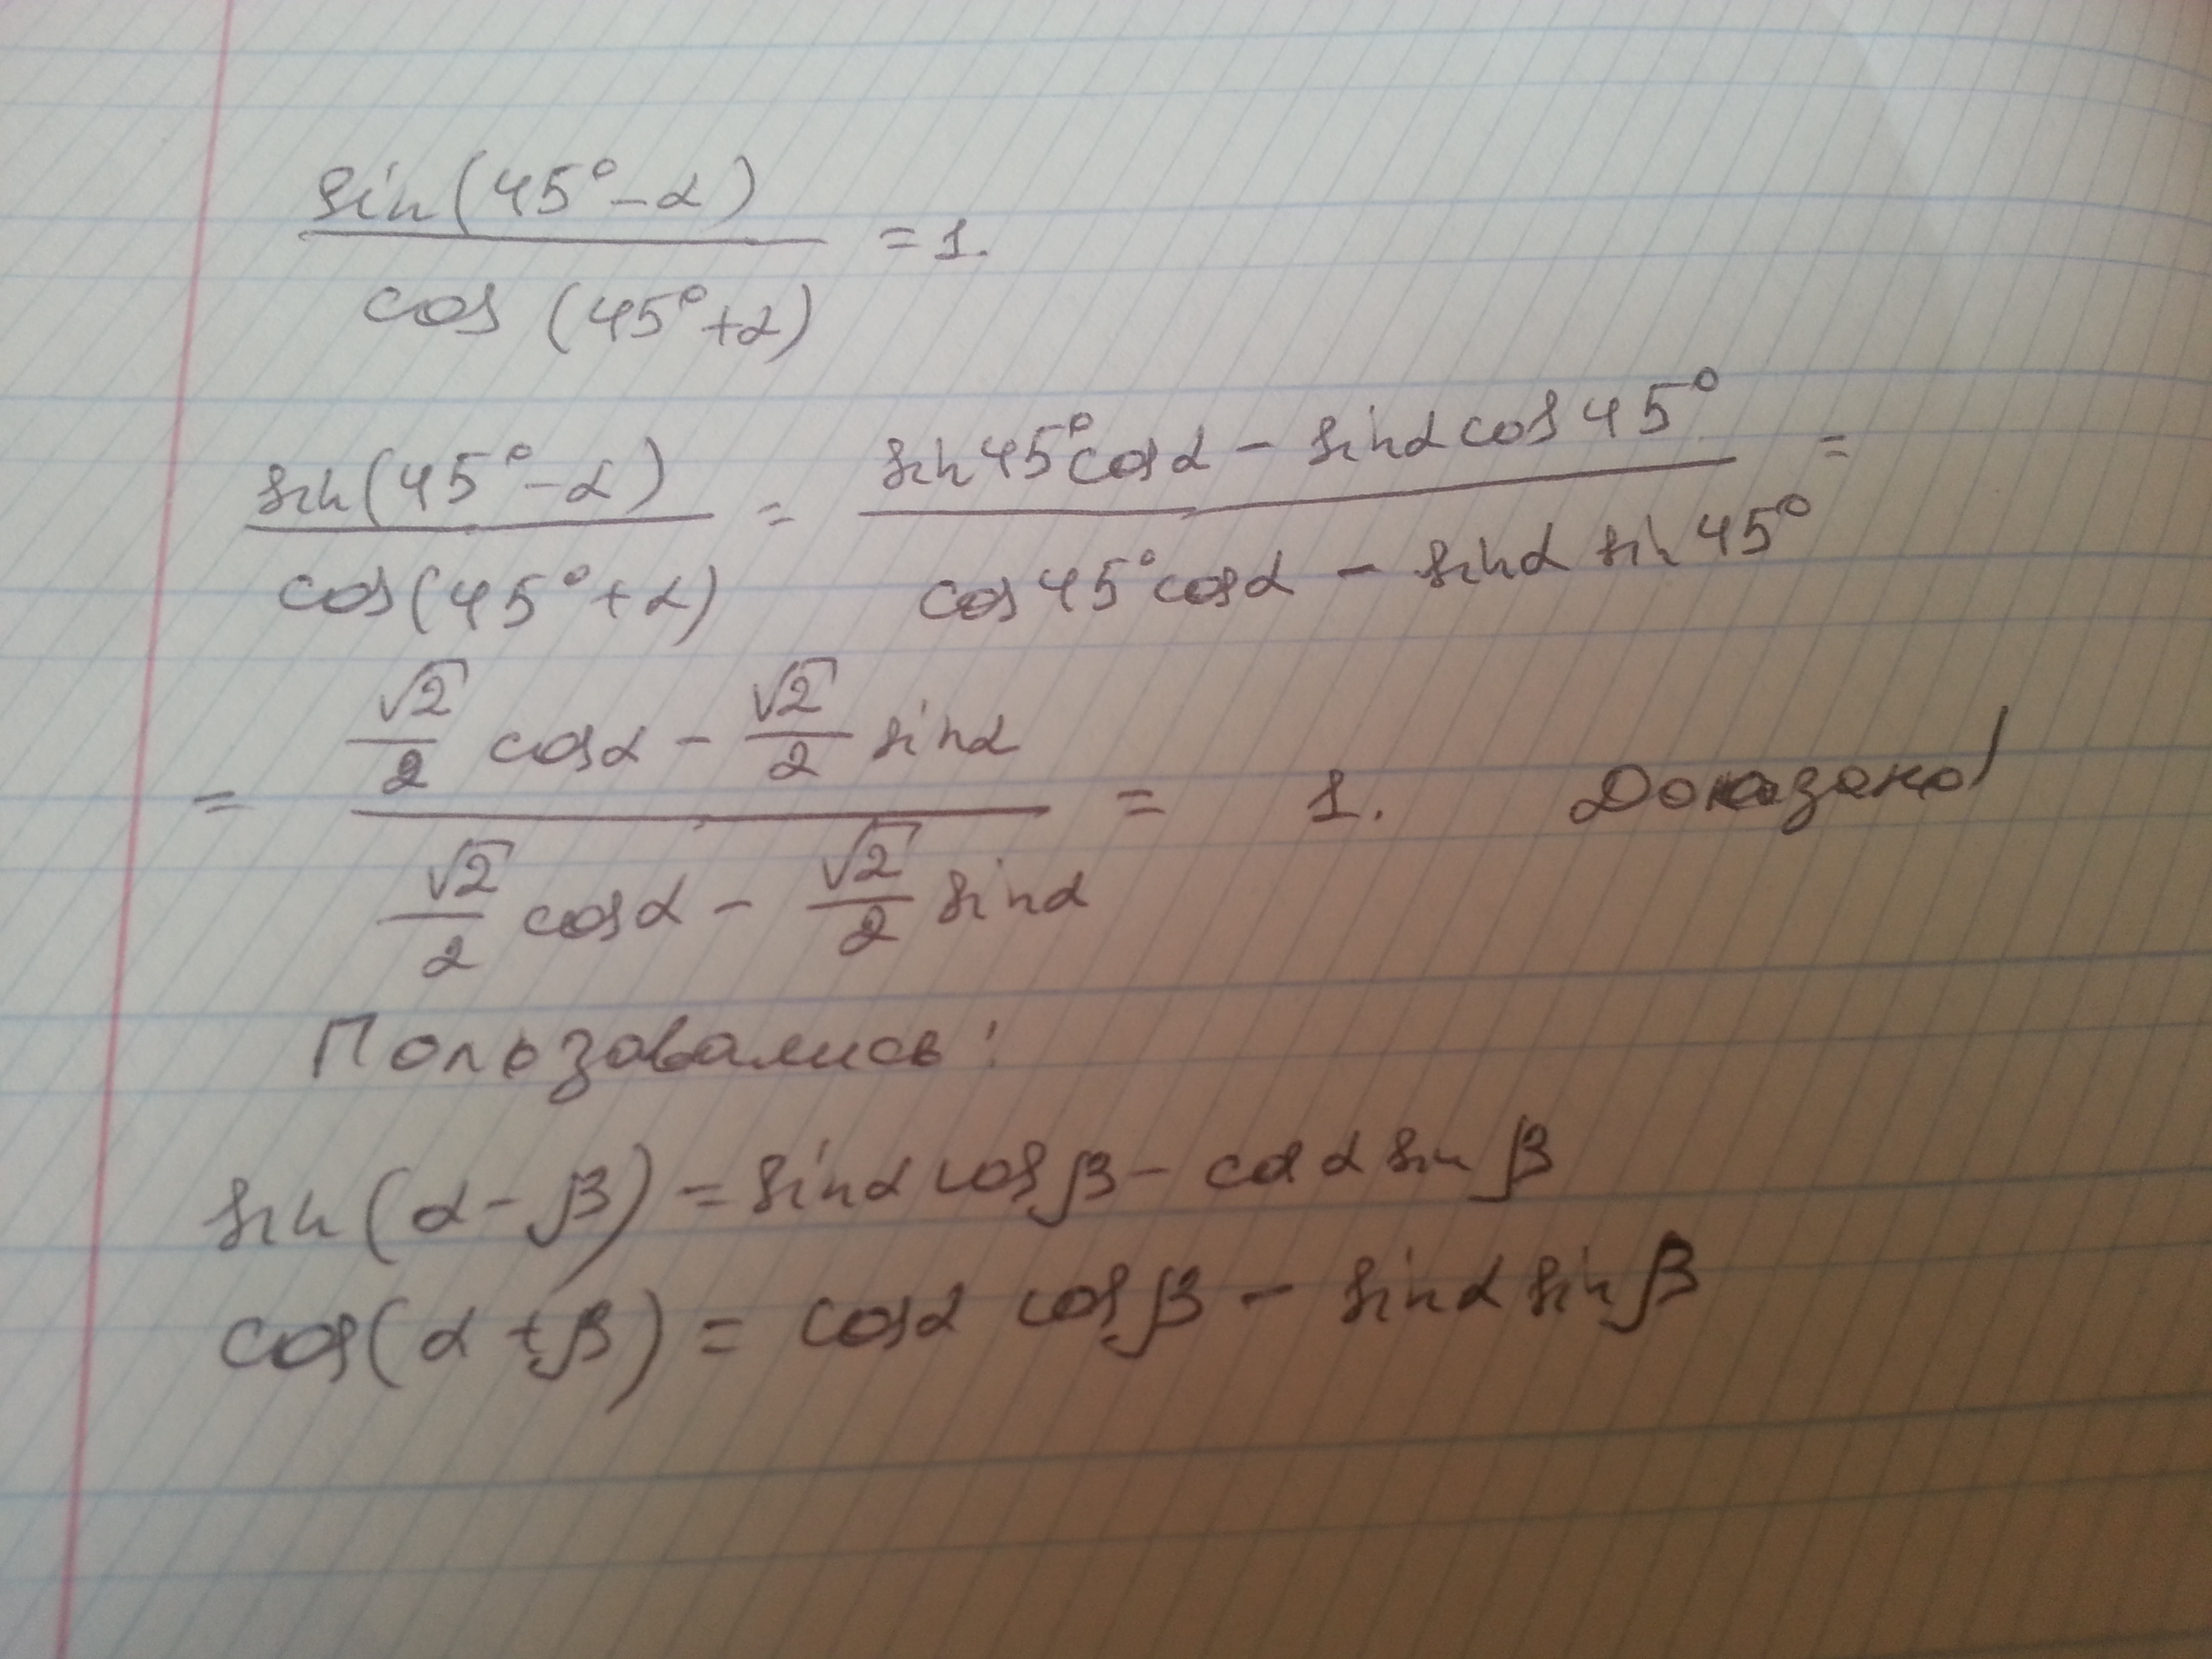 sin(45°-α) / cos(45°+α) = 1.
sin(45°-α) / cos(45°+α) = sin45°cosα - sinαcos45° / cos45°cosα - sinα sin45° =
= √2/2 cosα - √2/2 sinα / √2/2 cosα - √2/2 sinα = 1. Доказано!
Пользовались:
sin(α-β) = sinα cosβ - cosα sinβ
cos(α+β) = cosα cosβ - sinα sinβ